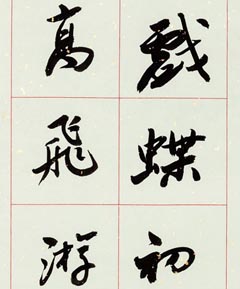 戲蝶初
高飛游